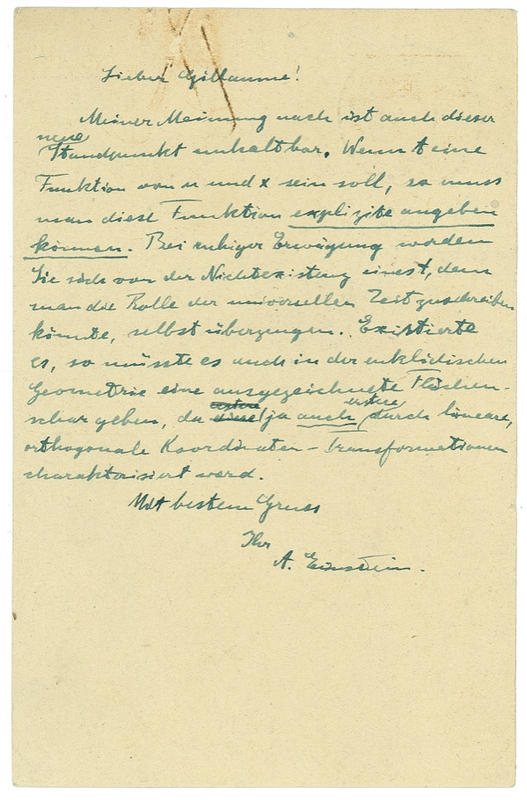 Lieber Guillaume!
Meiner Meinung nach ist auch dieser
neue
Standpunkt unhaltbar. Wenn t eine
Funktion von u und x sein soll, so muss
man diese Funktion explizite angeben
können. Bei ruhiger Erwägung werden
Sie sich von der Nichtexistenz eines t, dem
man die Rolle der universellen Zeit zuschreiben
könnte, selbst überzeugen. Existierte
es, so müsste es auch in der euklidischen
Geometrie eine ausgezeichnete Flächen-
schar geben, da ja auch erstere durch lineare,
orthogonale Koordinaten-Transformationen
charakterisiert werd.
Mit bestem Gruss
Ihr
A. Einstein.